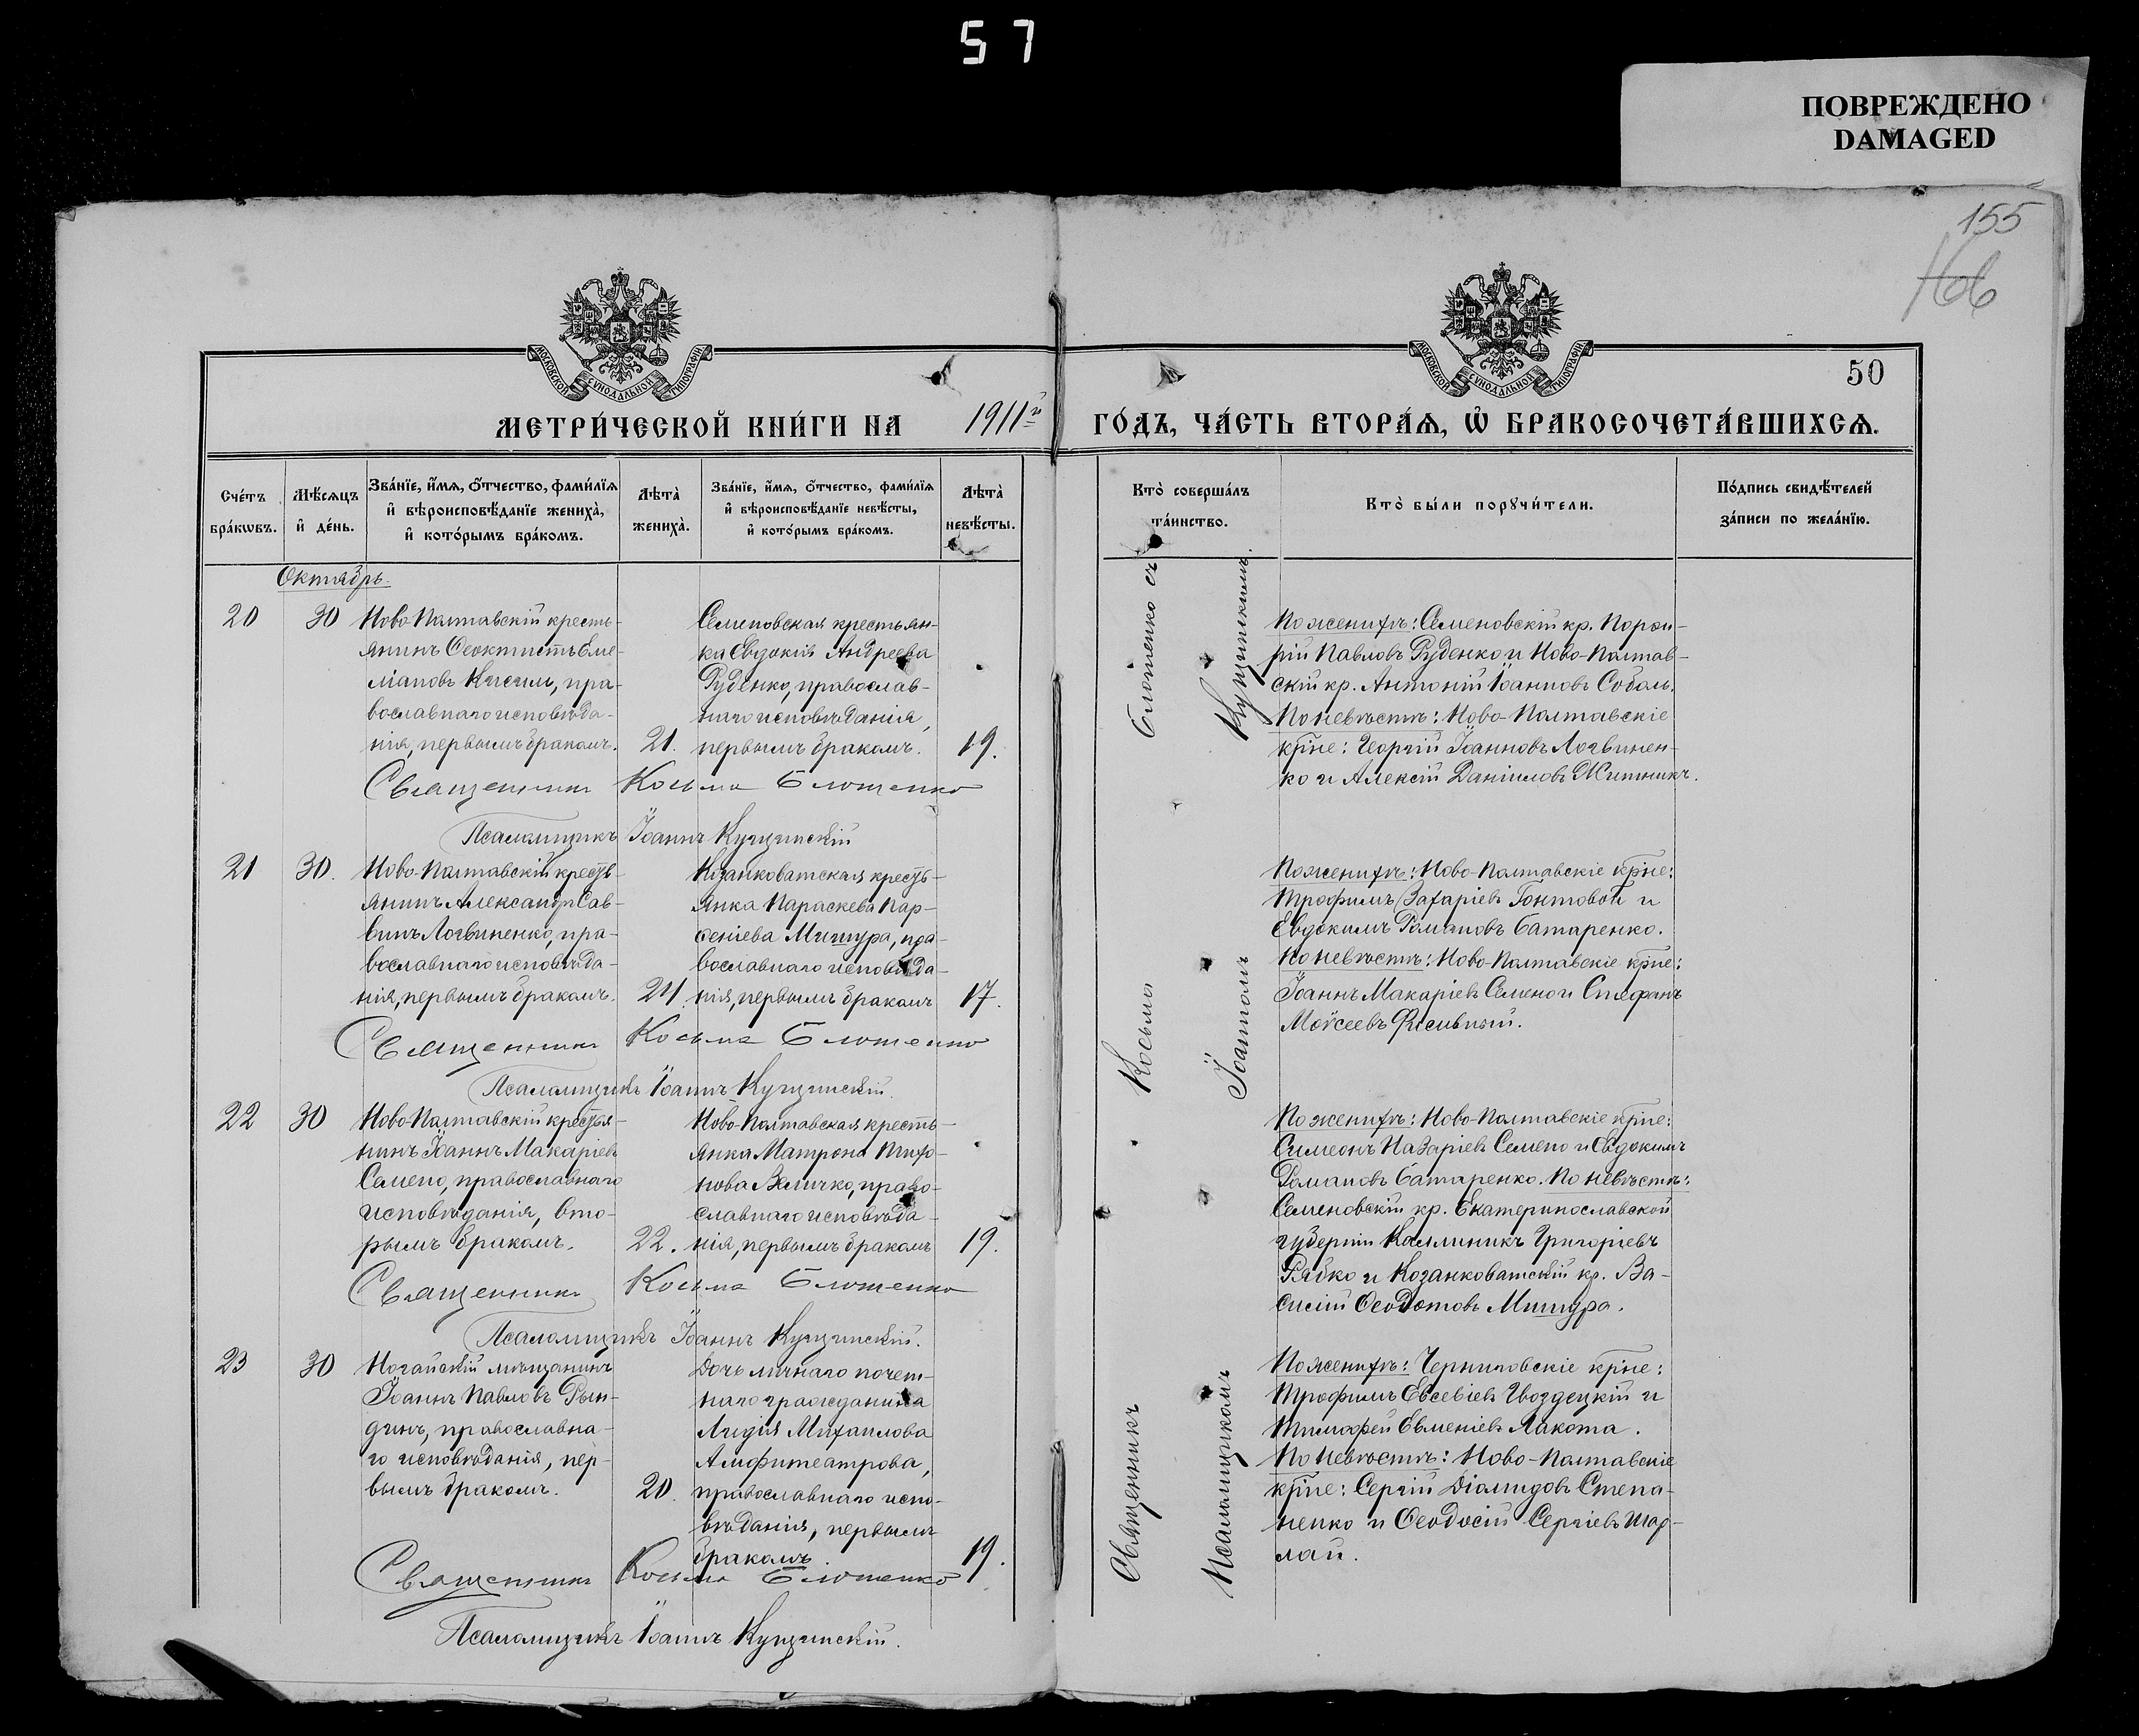 57
ПОВРЕЖДЕНО
DAMAGED
155
166
МОСКОВСКОЙ СѴНОДАЛЬНОЙ ТИПОГРАФІИ
МОСКОВСКОЙ СѴНОДАЛЬНОЙ ТИПОГРАФІИ
50
МЕТРИ́ЧЕСКОЙ КНИ́ГИ НА 1911й ГО́ДЪ, ЧА́СТЬ ВТОРА́Ѧ, Ѡ҆ БРАКОСОЧЕТА́ВШИХСѦ.
Сче́тъ
бра́кѡвъ.
Мѣ́сѧцъ
и҆ де́нь.
Зва́нїе, и҆́мѧ, ѻ҆́тчество, фами́лїѧ
и҆ вѣроисповѣ́данїе жениха̀,
и҆ кото́рымъ бра́комъ.
Лѣ́та̀
жениха̀.
Зва́нїе, и҆́мѧ, ѻ҆́тчество, фами́лїѧ
и҆ вѣроисповѣ́данїе невѣ́сты,
и҆ кото́рымъ бра́комъ.
Лѣ́та̀
невѣ́сты.
Кто̀ соверша́лъ
та́инство.
Кто̀ бы́ли порꙋчи́тели.
По́дпись свидѣ́телей
за́писи по жела́нїю.
Октябрь.
20
30
Ново-Полтавскій кресть-
янинъ Ѳеоктистъ Еме-
ліановъ Кисиль, пра-
вославнаго исповѣда-
нія, первымъ бракомъ.
21.
Семеновская крестьян-
ка Евдокія Андреева
Руденко, православ-
наго исповѣданія,
первымъ бракомъ.
19.
По женихѣ: Семеновскій кр. Порфи-
рій Павловъ Руденко и Ново-Полтав-
скій кр. Антоній Іоанновъ Соболь.
По невѣстѣ: Ново-Полтавскіе
кр-не: Георгій Іоанновъ Логвинен-
ко и Алексій Даніиловъ Житникъ.
Священникъ Косьма Блошенко
Псаломщикъ Іоаннъ Кущинскій
21
30.
Ново-Полтавскій кресть-
янинъ Александръ Сав-
винъ Логвиненко, пра-
вославнаго исповѣда-
нія, первымъ бракомъ.
24.
Козанковатская кресть-
янка Параскева Пар-
ѳеніева Мишура, пра-
вославнаго исповѣда-
нія, первымъ бракомъ
17.
По женихѣ: Ново-Полтавскіе кр-не:
Трофимъ Захаріевъ Гонтовой и
Евдокимъ Романовъ Батаренко.
По невѣстѣ: Ново-Полтавскіе кр-не:
Іоаннъ Макаріевъ Семено и Стефанъ
Моѵсеевъ
Священникъ Косьма Блошенко
Псаломщикъ Іоаннъ Кущинскій.
22
30
Ново-Полтавскій крестья-
нинъ Іоаннъ Макаріевъ
Семено, православнаго
исповѣданія, вто-
рымъ бракомъ.
22.
Ново-Полтавская кресть-
янка Матрона Тихо-
нова Величко, право-
славнаго исповѣда-
нія, первымъ бракомъ
19.
По женихѣ: Ново-Полтавскіе кр-не:
Симеонъ Назаріевъ Семено и Евдокимъ
Романовъ Батаренко. По невѣстѣ:
Семеновскій кр. Екатеринославской
губерніи Каллиникъ Григоріевъ
Рябко и Козанковатскій кр. Ва-
силій Ѳеодотовъ Мишура.
Священникъ Косьма Блошенко
Псаломщикъ Іоаннъ Кущинскій.
23
30
Ногайскій мѣщанинъ
Іоаннъ Павловъ Рын-
динъ, православна-
го исповѣданія, пер-
вымъ бракомъ.
20.
Дочь личнаго почет-
наго гражданина
Лидія Михаилова
Амфитеатрова,
православнаго испо-
вѣданія, первымъ
бракомъ.
19.
По женихѣ: Черниговскіе кр-не:
Трофимъ Евсевіевъ Гвоздецкій и
Тимофей Евменіевъ Лакота.
По невѣстѣ: Ново-Полтавскіе
кр-не: Сергій Діомидовъ Степа-
ненко и Ѳеодосій Сергіевъ Шар-
лай.
Священникъ Косьма Блошенко
Псаломщикъ Іоаннъ Кущинскій.
Священникъ Косьма Блошенко съ
Псаломщикомъ Іоанномъ Кущинскимъ.